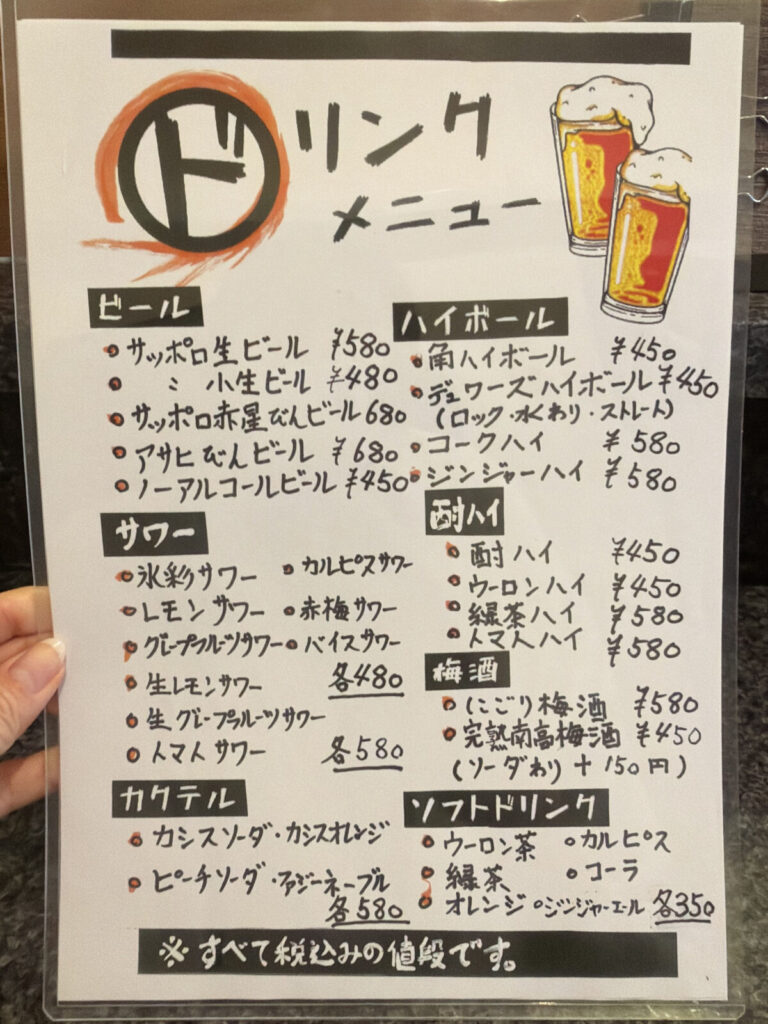 ドリンク
メニュー
ビール
サッポロ生ビール ¥580
〃 小生ビール ¥480
サッポロ赤星びんビール 680
アサヒびんビール ¥680
ノーアルコールビール ¥450
サワー
氷彩サワー ・カルピスサワー
レモンサワー ・赤梅サワー
グレープフルーツサワー ・バイスサワー
生レモンサワー 各480
生グレープフルーツサワー
トマトサワー 各580
カクテル
カシスソーダ・カシスオレンジ
ピーチソーダ・ファジーネーブル
各580
ハイボール
角ハイボール ¥450
デュワーズハイボール ¥450
(ロック・水わり・ストレート)
コークハイ ¥580
ジンジャーハイ ¥580
酎ハイ
酎ハイ ¥450
ウーロンハイ ¥450
緑茶ハイ ¥580
トマトハイ ¥580
梅酒
にごり梅酒 ¥580
完熟南高梅酒 ¥450
(ソーダわり+150円)
ソフトドリンク
ウーロン茶 ○カルピス
緑茶 ○コーラ
オレンジ ○ジンジャーエール 各350
※すべて税込みの値段です。